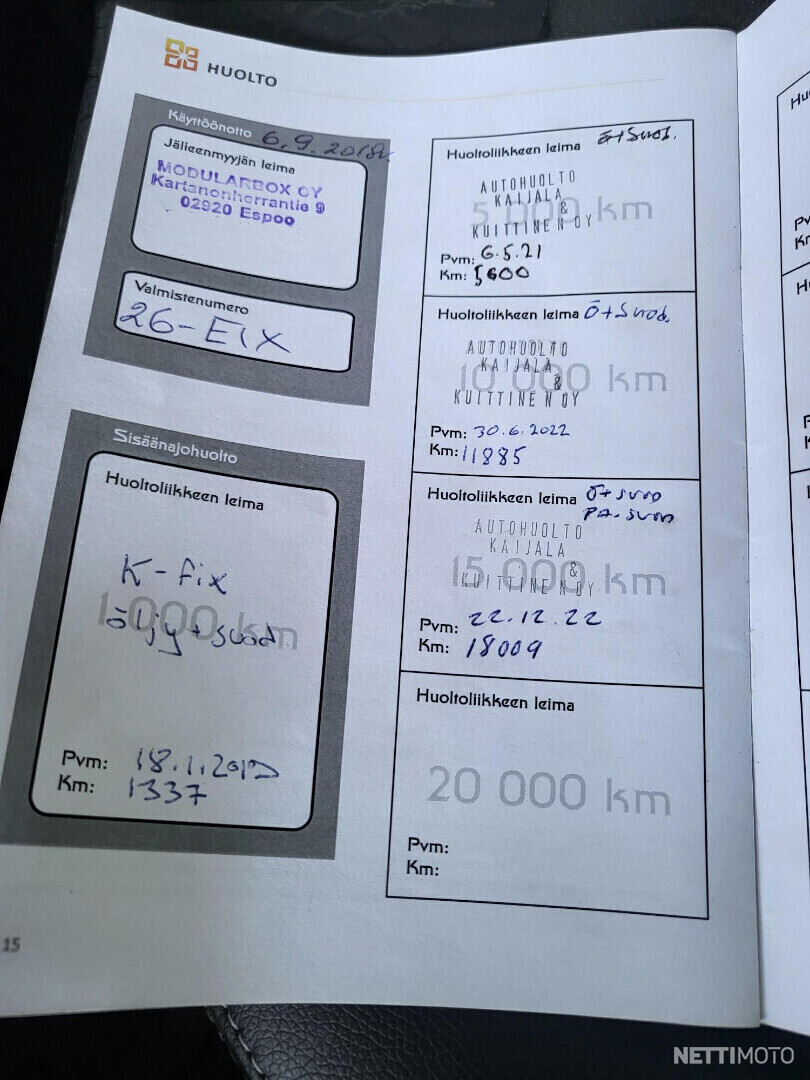 HUOLTO
Käyttöönotto 6.9.2018
Jälleenmyyjän leima
MODULARBOX OY
Kartanonherrantie 9
02920 Espoo
Valmistenumero
26-EIX
Sisäänajohuolto
Huoltoliikkeen leima
1 000 km
K-fix
öljy+suod.
Pvm: 18.1.2019
Km: 1337
Huoltoliikkeen leima ö+suod.
5 000 km
AUTOHUOLTO
KAIJALA
&
KUITTINEN OY
Pvm: 6.5.21
Km: 5600
Huoltoliikkeen leima Ö+suod.
10 000 km
AUTOHUOLTO
KAIJALA
&
KUITTINEN OY
Pvm: 30.6.2022
Km: 11885
Huoltoliikkeen leima Ö+suod
PA.suod
15 000 km
AUTOHUOLTO
KAIJALA
&
KUITTINEN OY
Pvm: 22.12.22
Km: 18009
Huoltoliikkeen leima
20 000 km
Pvm:
Km:
15
NETTIMOTO